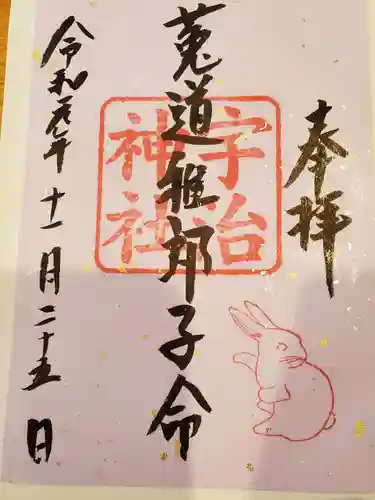 奉拝
菟道稚郎子命
宇治
神社
令和元年十一月二十五日